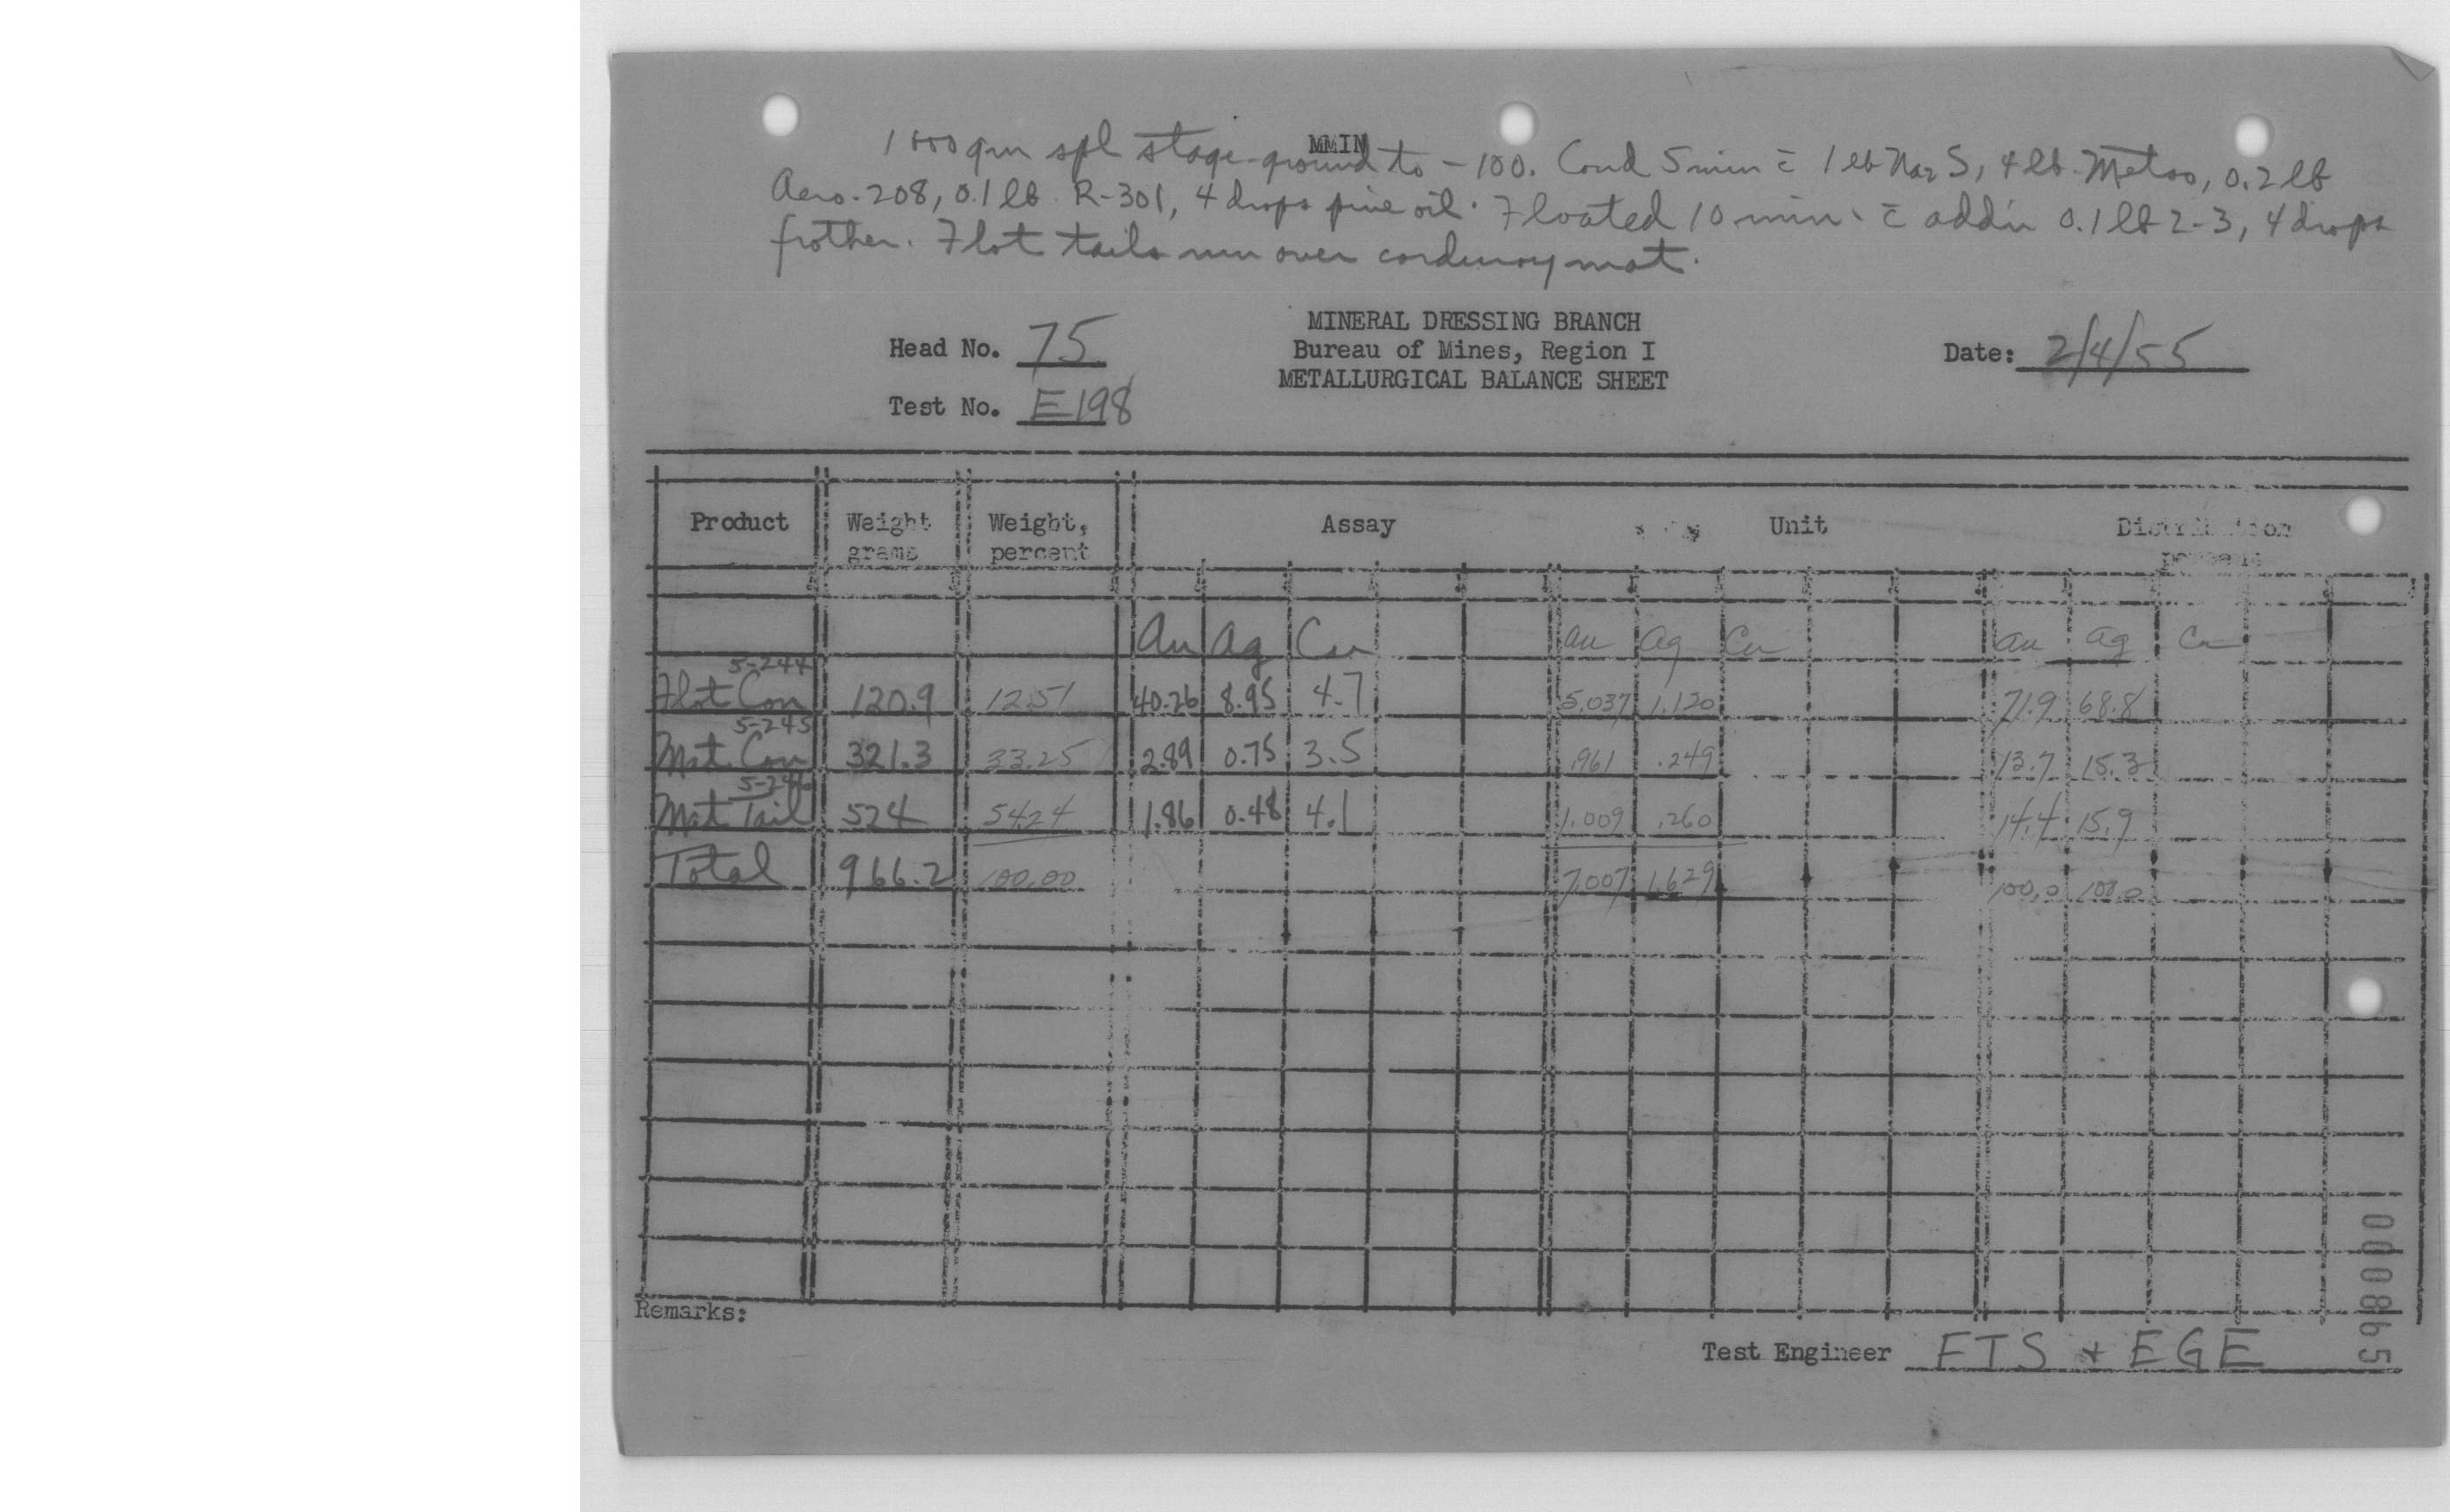 MMIN
1000 gm spl stage-ground to -100. Cond 5 min c̄ 1 lb Na2S, 4 lb. Metso, 0.2 lb
Aero-208, 0.1 lb R-301, 4 drops pine oil. Floated 10 min. c̄ add'n 0.1 lb Z-3, 4 drops
frother. Flot tails run over corduroy mat.
Head No. 75
MINERAL DRESSING BRANCH
Bureau of Mines, Region I
METALLURGICAL BALANCE SHEET
Date: 2/4/55
Test No. E198
Product Weight grams Weight, percent Assay Unit Distribution percent
Au Ag Cu Au Ag Cu Au Ag Cu
5-244
Flot Con 120.9 12.51 40.26 8.95 4.7 5.037 1.120 71.9 68.8
5-245
Mat Con 321.3 33.25 2.89 0.75 3.5 .961 .249 13.7 15.3
5-246
Mat Tail 524 54.24 1.86 0.48 4.1 1.009 .260 14.4 15.9
Total 966.2 100.00 7.007 1.629 100.0 100.0
Remarks:
Test Engineer FTS + EGE
000865